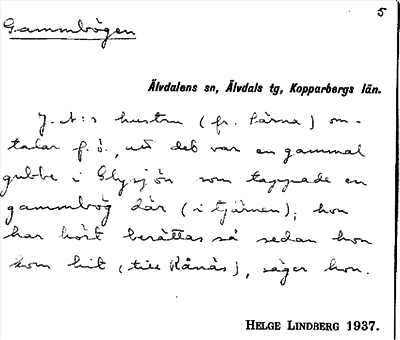 5
Gammbögen
Älvdalens sn, Älvdals tg, Kopparbergs län.
J. A:s hustru (fr. Särna) om-
talar f. ö., att det var en gammal
gubbe i Glysjön som tappade en
gammbög där (i tjärnen); hon
har hört berättas så sedan hon
kom hit (till Rånäs), säger hon.
HELGE LINDBERG 1937.